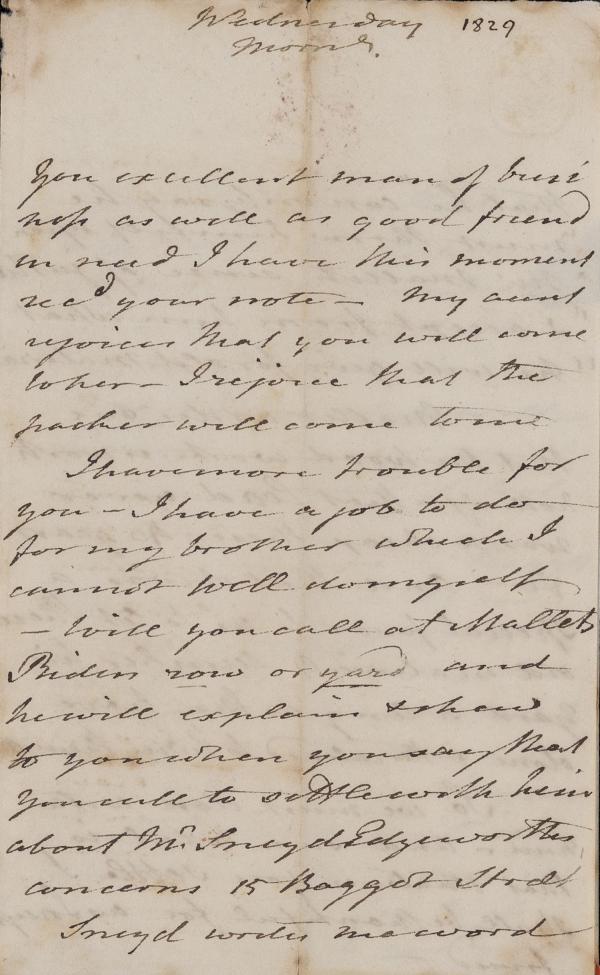 Wednesday 1829
Morng.
You excellent man of busi
ness as well as good friend
in need I have this moment
recd your note – My aunt
rejoices that you will come
to her – I rejoice that the
packer will come to me
I have more trouble for
you – I have a job to do
for my brother which I
cannot well do myself
– Will you call at Mallets
Riders row or yard and
he will explain & shew
to you when you say that
you call to settle with him
about Mr. Sneyd Edgeworths
concerns 15 Baggot Street
Sneyd writes me word